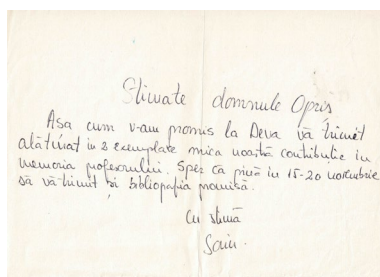 Stimate domnule Opriș
Așa cum v-am promis la Deva vă trimet
alăturat in 2 exemplate mica noastră contribuție in
memoria profesorului. Sper ca pînă in 15-20 noiembrie
să vă trimit și bibliografia promisă.
Cu stimă